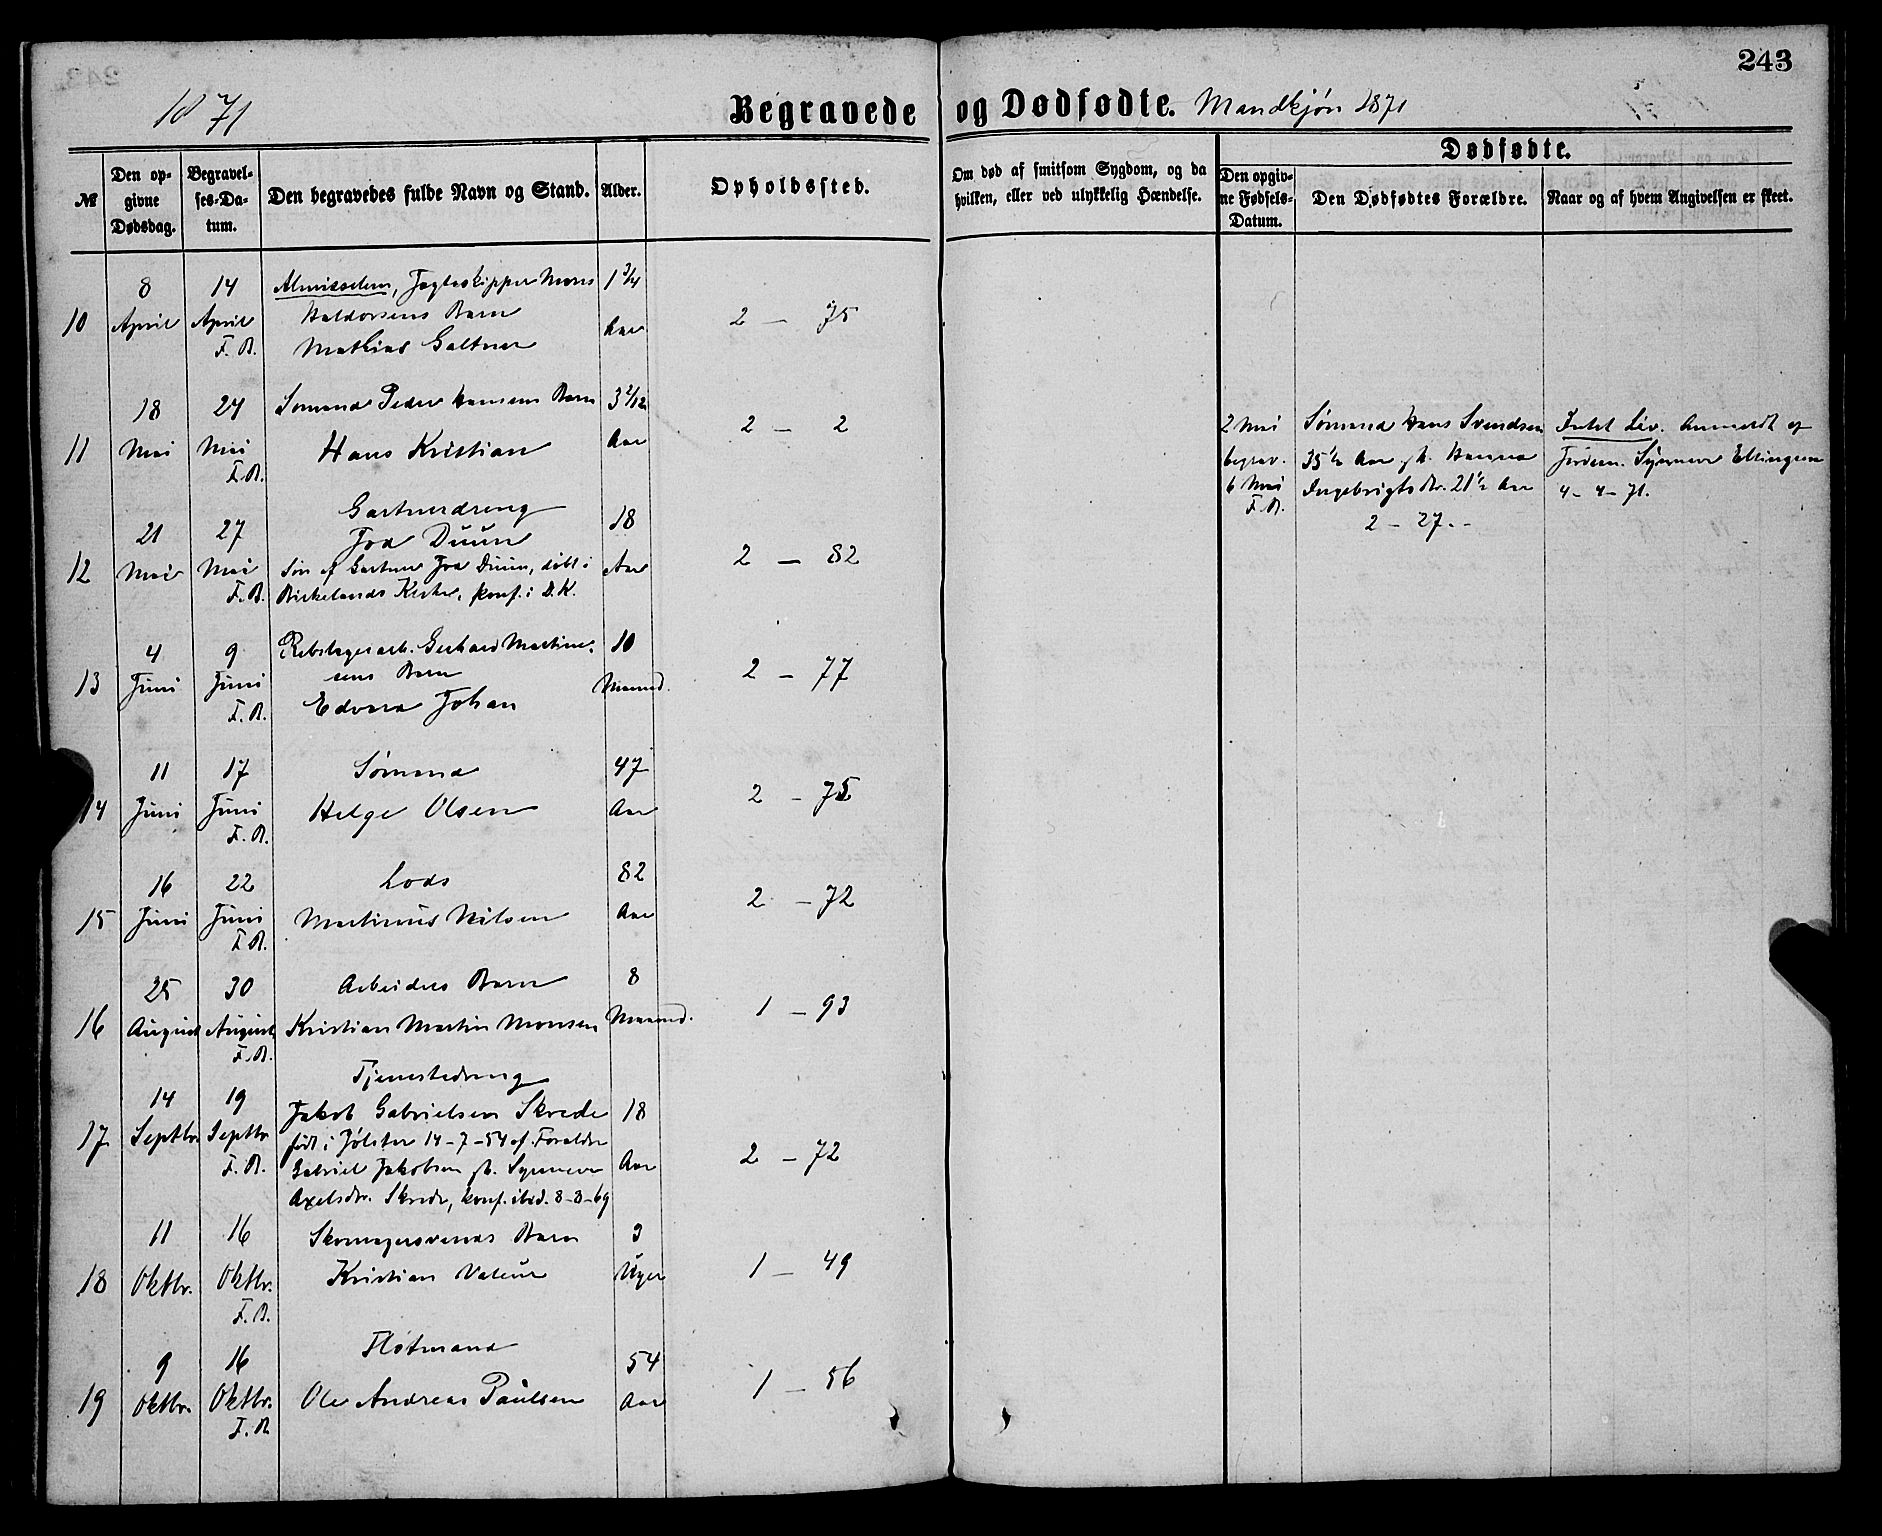 243
1871
Begravede og Dødfødte. Mandkjøn 1871
Dødfødte.
№
Den opgivne Dødsdag.
Begravelses-Datum.
Den begravedes fulde Navn og Stand.
Alder.
Opholdssted.
Om død af smitsom Sygdom, og da hvilken, eller ved ulykkelig Hændelse.
Den opgivne Fødsels-Datum.
Den Dødfødtes Forældre.
Naar og af hvem Angivelsen er skeet.
8 14 Almisselem, Jagteskipper Mons 1 3/4
10 April April Haldorsens Barn Aar 2 – 75
F. B. Mathias Galtner
18 24 Sømand Peder Hansens Barn 3 2/12
11 Mai Mai Hans Kristian Aar 2 – 2
F. B.
2 Mai Sømand Hans Svendsen Intet Liv. Anmeldt af
begrav. 35 1/2 Aar gb. Hanna Jordem. Synneve Ellingsen
6 Mai Ingebrigtsdtr. 21 1/2 Aar 4 – 4 – 71.
F. B. 2 – 27. –
Gartnerdreng
21 27 Joa Duun 18
12 Mai Mai Søn af Gartner Joa Duun, døbt i Aar 2 – 82
F. B. Birkelands Kirke, konf. i D. K.
4 9 Rebslagerarb. Gerhard Martin- 10
13 Juni Juni sens Barn Maaned. 2 – 77
F. B. Edvard Johan
11 17 Sømand 47
14 Juni Juni Helge Olsen Aar 2 – 75
F. B.
16 22 Lods 82
15 Juni Juni Martinus Nilsen Aar 2 – 72
F. B.
25 30 Arbeiders Barn 8
16 August August Kristian Martin Monsen Maaned. 1 – 93
F. B.
Tjenestedreng
14 19 Jakob Gabrielsen Skrede 18
17 Septbr. Septbr. født i Jølster 14 – 7 – 54 af Forældre
F. B. Gabriel Jakobsen gb. Synneve Aar 2 – 72
Axelsdtr. Skrede, konf. ibid. 8 – 8 – 69
11 16 Skomagersvends Barn 3
18 Oktbr. Oktbr. Kristian Valeur Uger 1 – 49
F. B.
9 16 Fløtmand 54
19 Oktbr. Oktbr. Ole Andreas Paulsen Aar 1 – 56
F. B.